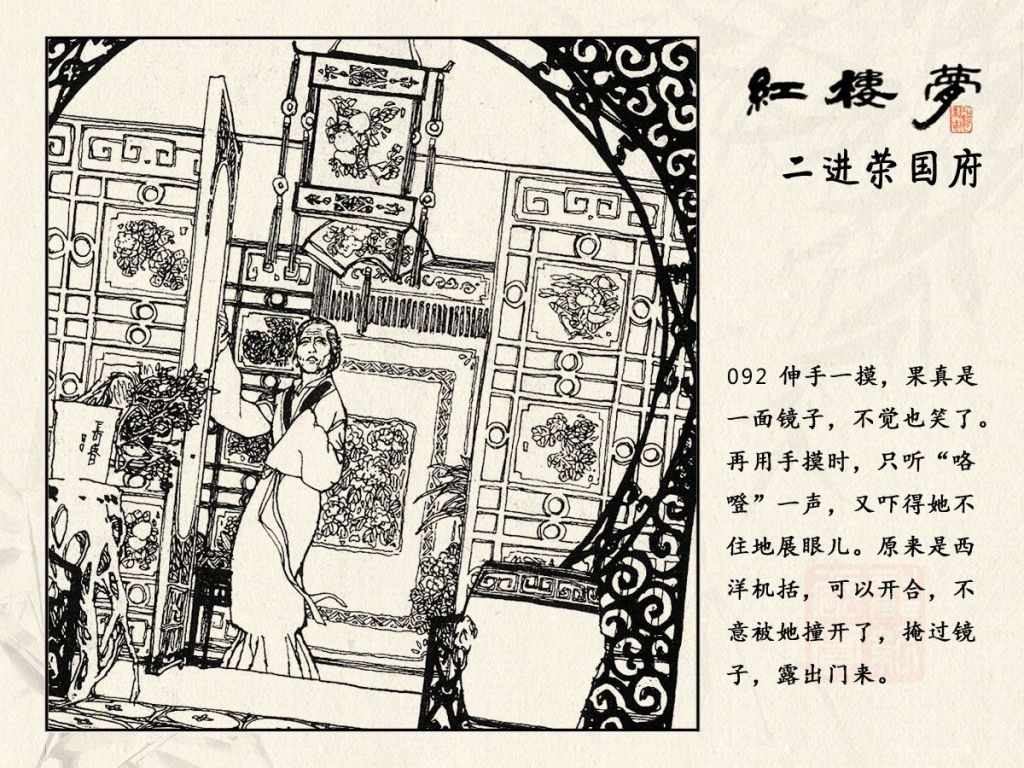 紅樓夢
二进荣国府
092 伸手一摸，果真是
一面镜子，不觉也笑了。
再用手摸时，只听“咯
噔”一声，又吓得她不
住地展眼儿。原来是西
洋机括，可以开合，不
意被她撞开了，掩过镜
子，露出门来。
长春